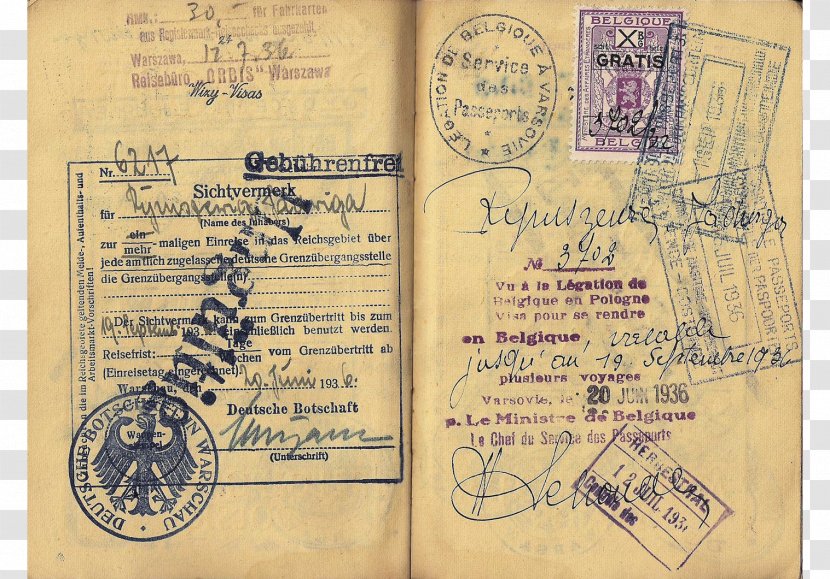 RMk.: 30,- für Fahrkarten
aus Registermark-Reiseschecks ausgezahlt.
Warszawa, 12.7.36
Reisebüro „ORBIS" Warszawa
Wizy-Visas
Nr. 6217
Gebührenfrei
Sichtvermerk
für
(Name des Inhabers)
zur ein
mehr-maligen Einreise in das Reichsgebiet über
jede amtlich zugelassene deutsche Grenzübergangsstelle
die Grenzübergangsstelle(n)
Der Sichtvermerk kann zum Grenzübertritt bis zum
19. September 193 einschließlich benutzt werden.
Reisefrist: Tage
Wochen vom Grenzübertritt ab
(Einreisetag eingerechnet)
Warschau, den 20. Juni 1936.
Deutsche Botschaft
(Unterschrift)
DEUTSCHE BOTSCHAFT IN WARSCHAU
die im Reichsgebiete geltenden Melde-, Aufenthalts- und
Arbeitsmarkt-Vorschriften!
LÉGATION DE BELGIQUE À VARSOVIE
Service
des
Passeports
BELGIQUE
GRATIS
3702
BELG
Jadwiga
№ 3702
Vu à la Légation de
Belgique en Pologne
Visa pour se rendre
en Belgique, valable
jusqu'au 19 Septembre 1936
plusieurs voyages
Varsovie, le 20 JUIN 1936
p. Le Ministre de Belgique
Le Chef du Service des Passeports
HERBESTHAL
JUIL 1936